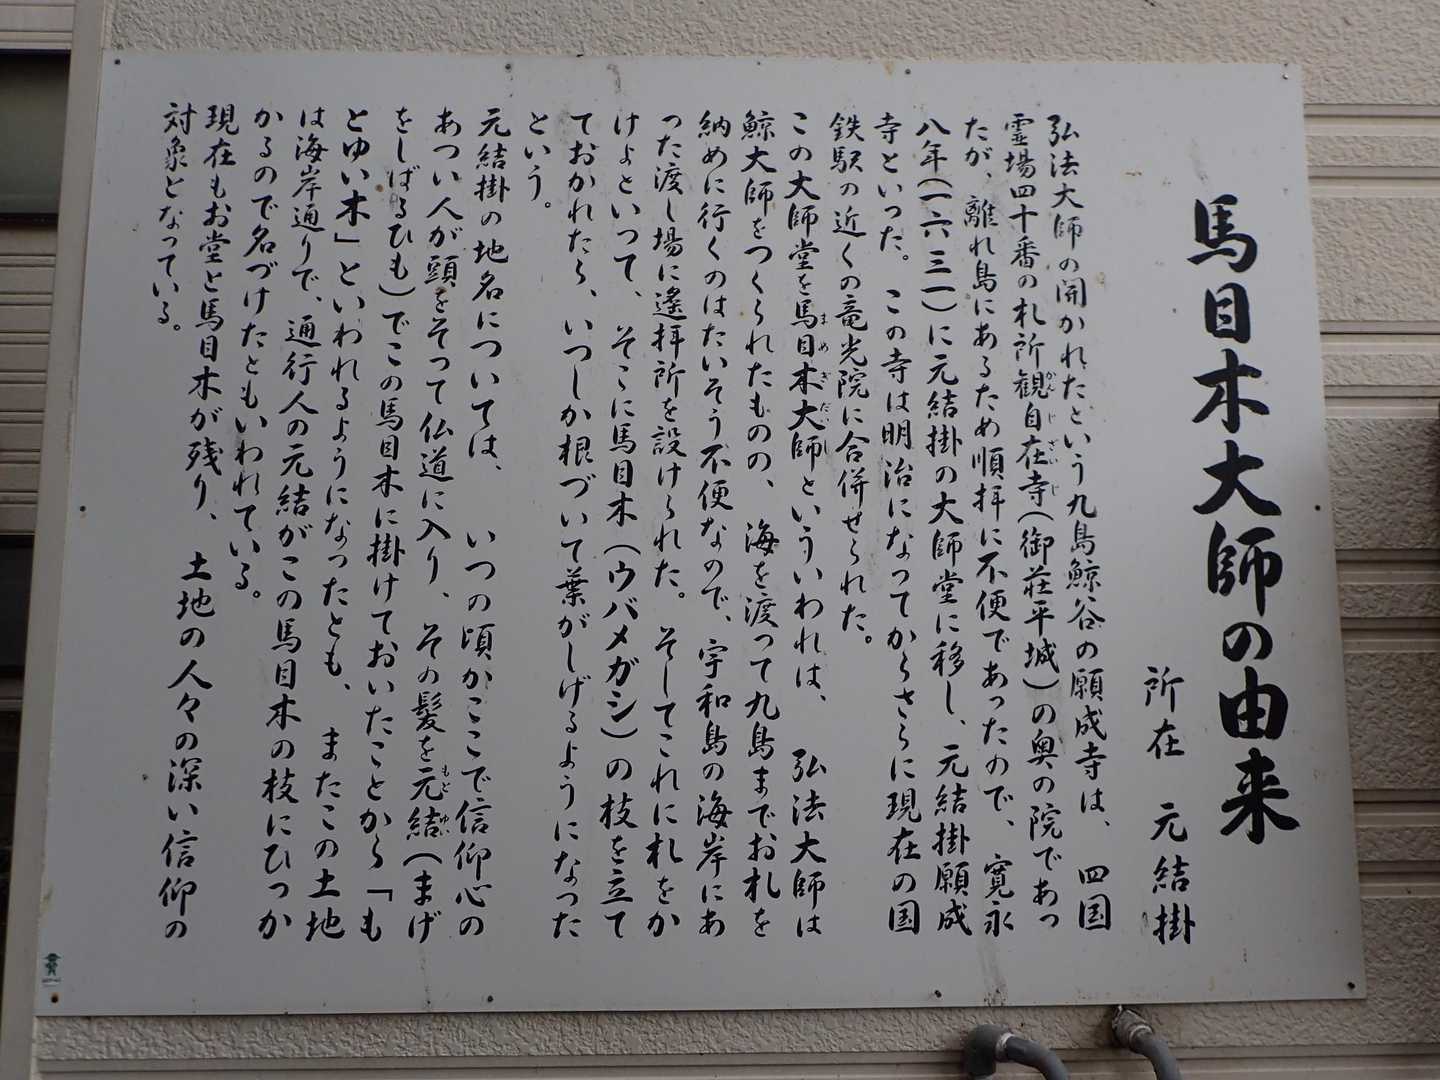 馬目木大師の由来
所在　元結掛
弘法大師の開かれたという九島鯨谷の願成寺は、四国
霊場四十番の札所観自在寺(御荘平城)の奥の院であっ
かんじざいじ
たが、離れ島にあるため順拝に不便であったので、寛永
八年(一六三一)に元結掛の大師堂に移し、元結掛願成
寺といった。この寺は明治になってからさらに現在の国
鉄駅の近くの竜光院に合併せられた。
この大師堂を馬目木大師といういわれは、弘法大師は
まめぎだいし
鯨大師をつくられたものの、海を渡って九島までお札を
納めに行くのはたいそう不便なので、宇和島の海岸にあ
った渡し場に遙拝所を設けられた。そしてこれに札をか
けよといって、そこに馬目木(ウバメガシ)の枝を立て
ておかれたら、いつしか根づいて葉がしげるようになった
という。
元結掛の地名については、いつの頃かここで信仰心の
あつい人が頭をそって仏道に入り、その髪を元結(まげ
もとゆい
をしばるひも)でこの馬目木に掛けておいたことから「も
とゆい木」といわれるようになったとも、またこの土地
は海岸通りで、通行人の元結がこの馬目木の枝にひっか
かるので名づけたともいわれている。
現在もお堂と馬目木が残り、土地の人々の深い信仰の
対象となっている。